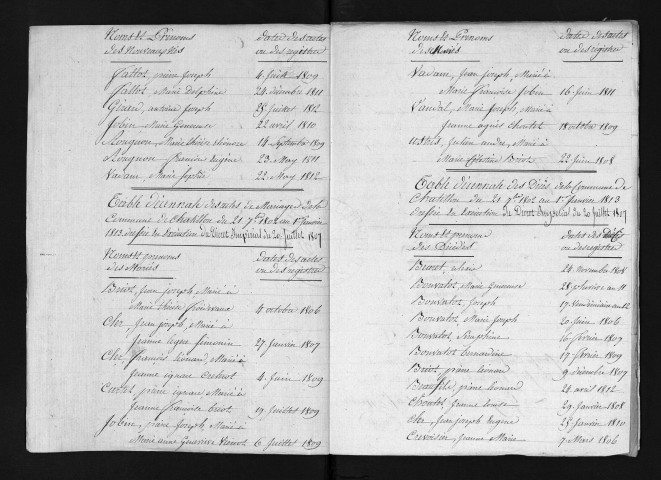 Noms et Prénoms
des Nouveaux Nés
Dates des actes
ou des registres
Jallot, pierre Joseph 4 Juin 1809
Jallot, Marie Delphine 24 décembre 1811
Girard, antoine Joseph 25 Juillet 1812
Jobin, Marie Genereuse 22 avril 1810
Nonguon, Marie thérèse éléonore 14 Septembre 1809
Nonguon, françois Eugène 23 May 1811
Vadam, Marie Josephe 22 May 1812
Table décennale des actes de Mariage de la
Commune de Chatillon du 21 7bre 1802 au 1er Janvier
1813 dressée en Exécution du Décret Impérial du 20 Juillet 1807
Noms et prenoms
des Mariés
Dates des actes
ou des registres
Briot, Jean Joseph, Marié à
Marie thérèse 4 octobre 1806
Cher, Jean Joseph, Marié à
Jeanne Simonin 27 Janvier 1807
Cher, françois Léonard, Marié à
Jeanne ignace 4 Juin 1809
pierre ignace, Marié à
Jeanne françoise briot 19 Juillet 1809
Jobin, pierre Joseph, Marié à
Marie anne Genevieve 6 Juillet 1809
Noms et Prenoms
des Mariés
Dates des actes
ou des registres
Vadam, Jean Joseph, Marié à
Marie françoise Jobin 16 Juin 1811
Vandal, Marie Joseph, Marié à
Jeanne agnès Choutet 18 octobre 1809
Julien andré, Marié à
Marie Briot 22 Juin 1808
Table décennale des Décès de la Commune de
Chatillon du 21 7bre 1802 au 1er Janvier 1813
dressée en Exécution du Décret Impérial du 20 Juillet 1807
Noms et prenoms
des Décédés
Dates des actes
ou des registres
24 Novembre 1808
Bonvalot, Marie Genereuse 28 pluviose an 11
Bonvalot, Joseph 17 Vendémiaire an 12
Bonvalot, Marie Joseph 20 Juin 1806
Bonvalot, Seraphine 16 fevrier 1807
Bonvalot bernardine 17 fevrier 1809
Briot, pierre Léonard 9 décembre 1807
pierre Léonard 21 avril 1812
Choutet, Jeanne Louise 29 Janvier 1808
Cher, Jean Joseph Eugène 25 Janvier 1810
Crevoisier, Jeanne Marie 7 Mars 1806